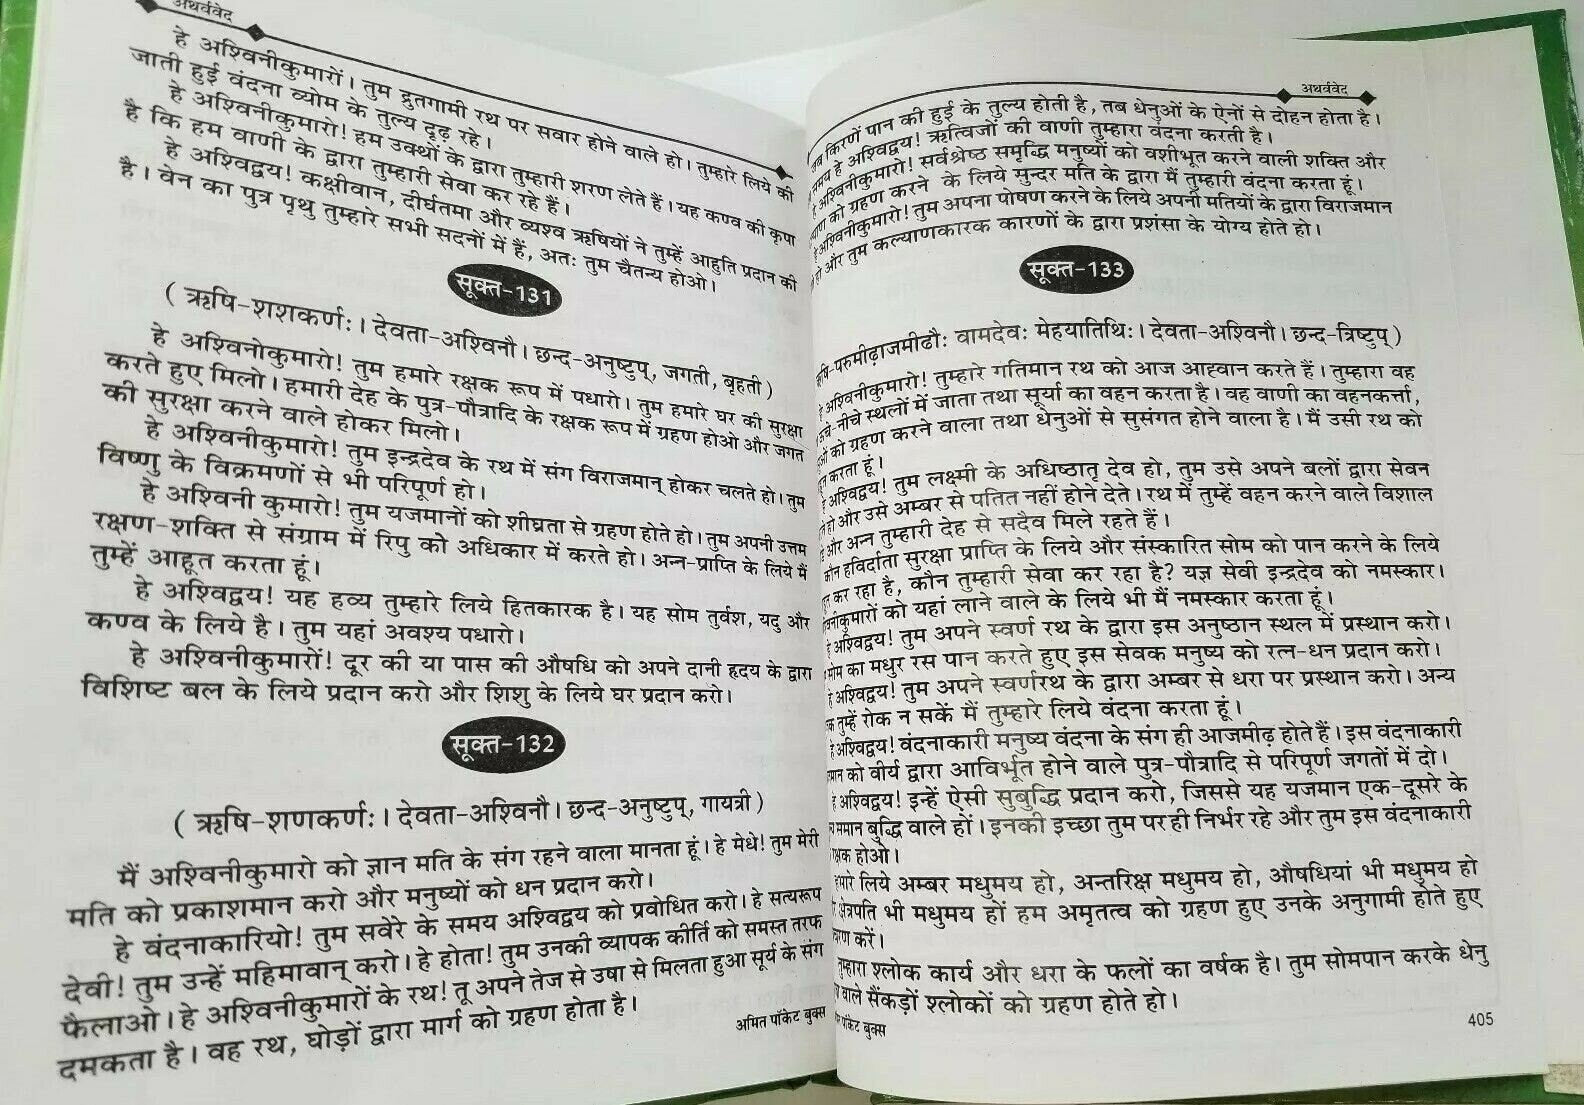 अथर्ववेद
हे अश्विनीकुमारों। तुम द्रुतगामी रथ पर सवार होने वाले हो। तुम्हारे लिये की
जाती हुई वंदना व्योम के तुल्य दृढ़ रहे।
हे अश्विनीकुमारो! हम उक्थों के द्वारा तुम्हारी शरण लेते हैं। यह कण्व की कृपा
है कि हम वाणी के द्वारा तुम्हारी सेवा कर रहे हैं।
हे अश्विद्वय! कक्षीवान, दीर्घतमा और व्यश्व ऋषियों ने तुम्हें आहुति प्रदान की
है। वेन का पुत्र पृथु तुम्हारे सभी सदनों में हैं, अतः तुम चैतन्य होओ।
सूक्त-131
(ऋषि-शशकर्णः। देवता-अश्विनौ। छन्द-अनुष्टुप्, जगती, बृहती)
हे अश्विनोकुमारो! तुम हमारे रक्षक रूप में पधारो। तुम हमारे घर की सुरक्षा
करते हुए मिलो। हमारी देह के पुत्र-पौत्रादि के रक्षक रूप में ग्रहण होओ और जगत
की सुरक्षा करने वाले होकर मिलो।
हे अश्विनीकुमारो! तुम इन्द्रदेव के रथ में संग विराजमान् होकर चलते हो। तुम
विष्णु के विक्रमणों से भी परिपूर्ण हो।
हे अश्विनी कुमारो! तुम यजमानों को शीघ्रता से ग्रहण होते हो। तुम अपनी उत्तम
रक्षण-शक्ति से संग्राम में रिपु को अधिकार में करते हो। अन्न-प्राप्ति के लिये मैं
तुम्हें आहूत करता हूं।
हे अश्विद्वय! यह हव्य तुम्हारे लिये हितकारक है। यह सोम तुर्वश, यदु और
कण्व के लिये है। तुम यहां अवश्य पधारो।
हे अश्विनीकुमारों! दूर की या पास की औषधि को अपने दानी हृदय के द्वारा
विशिष्ट बल के लिये प्रदान करो और शिशु के लिये घर प्रदान करो।
सूक्त-132
(ऋषि-शणकर्णः। देवता-अश्विनौ। छन्द-अनुष्टुप्, गायत्री)
मैं अश्विनीकुमारो को ज्ञान मति के संग रहने वाला मानता हूं। हे मेधे! तुम मेरी
मति को प्रकाशमान करो और मनुष्यों को धन प्रदान करो।
हे वंदनाकारियो! तुम सवेरे के समय अश्विद्वय को प्रवोधित करो। हे सत्यरूप
देवी! तुम उन्हें महिमावान् करो। हे होता! तुम उनकी व्यापक कीर्ति को समस्त तरफ
फैलाओ। हे अश्विनीकुमारों के रथ! तू अपने तेज से उषा से मिलता हुआ सूर्य के संग
दमकता है। वह रथ, घोड़ों द्वारा मार्ग को ग्रहण होता है।
अमित पॉकेट बुक्स
अथर्ववेद
किरणें पान की हुई के तुल्य होती है, तब धेनुओं के ऐनों से दोहन होता है।
हे अश्विद्वय! ऋत्विजों की वाणी तुम्हारा वंदना करती है।
हे अश्विनीकुमारो! सर्वश्रेष्ठ समृद्धि मनुष्यों को वशीभूत करने वाली शक्ति और
को ग्रहण करने के लिये सुन्दर मति के द्वारा मैं तुम्हारी वंदना करता हूं।
हे अश्विनीकुमारो! तुम अपना पोषण करने के लिये अपनी मतियों के द्वारा विराजमान
हो और तुम कल्याणकारक कारणों के द्वारा प्रशंसा के योग्य होते हो।
सूक्त-133
परुमीढ़ाजमीढौः वामदेवः मेहयातिथिः। देवता-अश्विनौ। छन्द-त्रिष्टुप्)
हे अश्विनीकुमारो! तुम्हारे गतिमान रथ को आज आह्वान करते हैं। तुम्हारा वह
नीचे स्थलों में जाता तथा सूर्या का वहन करता है। वह वाणी का वहनकर्त्ता,
को ग्रहण करने वाला तथा धेनुओं से सुसंगत होने वाला है। मैं उसी रथ को
करता हूं।
हे अश्विद्वय! तुम लक्ष्मी के अधिष्ठातृ देव हो, तुम उसे अपने बलों द्वारा सेवन
हो और उसे अम्बर से पतित नहीं होने देते। रथ में तुम्हें वहन करने वाले विशाल
और अन्न तुम्हारी देह से सदैव मिले रहते हैं।
कौन हविर्दाता सुरक्षा प्राप्ति के लिये और संस्कारित सोम को पान करने के लिये
कर रहा है, कौन तुम्हारी सेवा कर रहा है? यज्ञ सेवी इन्द्रदेव को नमस्कार।
को यहां लाने वाले के लिये भी मैं नमस्कार करता हूं।
हे अश्विद्वय! तुम अपने स्वर्ण रथ के द्वारा इस अनुष्ठान स्थल में प्रस्थान करो।
सोम का मधुर रस पान करते हुए इस सेवक मनुष्य को रत्न-धन प्रदान करो।
हे अश्विद्वय! तुम अपने स्वर्णरथ के द्वारा अम्बर से धरा पर प्रस्थान करो। अन्य
तुम्हें रोक न सकें मैं तुम्हारे लिये वंदना करता हूं।
हे अश्विद्वय! वंदनाकारी मनुष्य वंदना के संग ही आजमीढ़ होते हैं। इस वंदनाकारी
को वीर्य द्वारा आविर्भूत होने वाले पुत्र-पौत्रादि से परिपूर्ण जगतों में दो।
हे अश्विद्वय! इन्हें ऐसी सुबुद्धि प्रदान करो, जिससे यह यजमान एक-दूसरे के
समान बुद्धि वाले हों। इनकी इच्छा तुम पर ही निर्भर रहे और तुम इस वंदनाकारी
होओ।
लिये अम्बर मधुमय हो, अन्तरिक्ष मधुमय हो, औषधियां भी मधुमय हो
क्षेत्रपति भी मधुमय हों हम अमृतत्व को ग्रहण हुए उनके अनुगामी होते हुए
करें।
तुम्हारा श्लोक कार्य और धरा के फलों का वर्षक है। तुम सोमपान करके धेनु
वाले सैंकड़ों श्लोकों को ग्रहण होते हो।
पॉकेट बुक्स
405